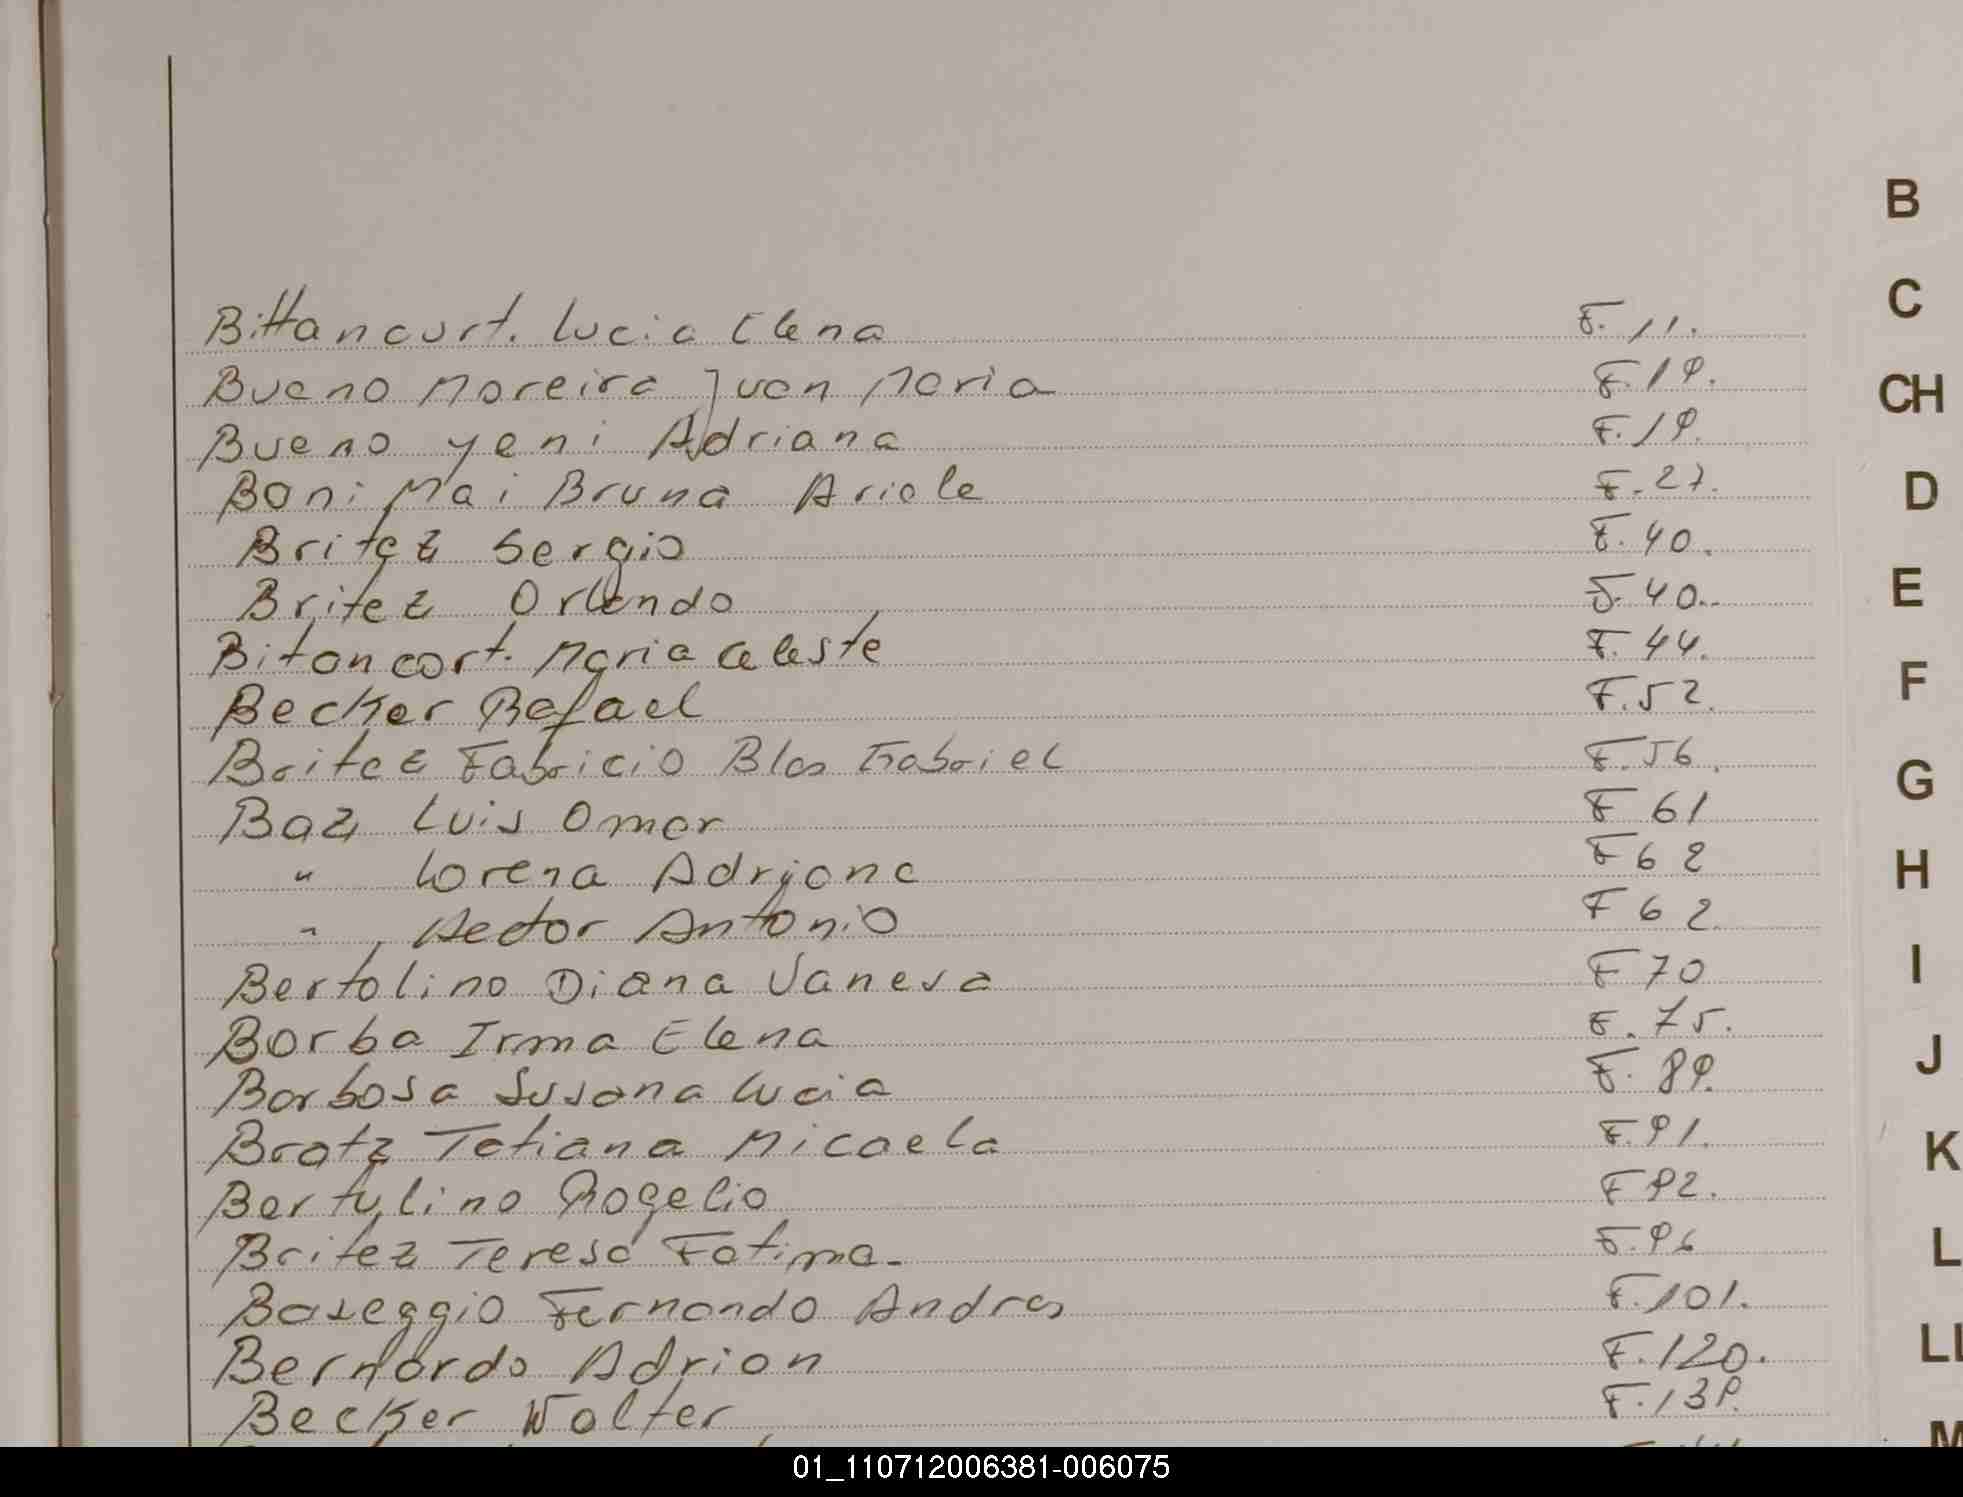 Bittancurt. Lucia Elena F. 11.
Bueno Moreira Juan Maria F. 19.
Bueno yeni Adriana F. 19.
Boni Mai Bruna Ariele F. 27.
Britez Sergio F. 40.
Britez Orlando F. 40.
Bitancort. Maria Celeste F. 44.
Becker Rafael F. 52.
Britez Fabricio Blas Gabriel F. 56.
Baz Luis Omar F 61
" Lorena Adriana F 62
" Hector Antonio F 62.
Bertolino Diana Vanesa F 70
Borba Irma Elena F. 75.
Barbosa Susana Lucia F. 89.
Bratz Tatiana Micaela F. 91.
Bertulino Rogelio F 92.
Britez Teresa Fatima. F. 96
Baseggio Fernando Andres F. 101.
Bernardo Adrian F. 120.
Becker Walter F. 139.
B
C
CH
D
E
F
G
H
I
J
K
L
LL
M
01_110712006381-006075